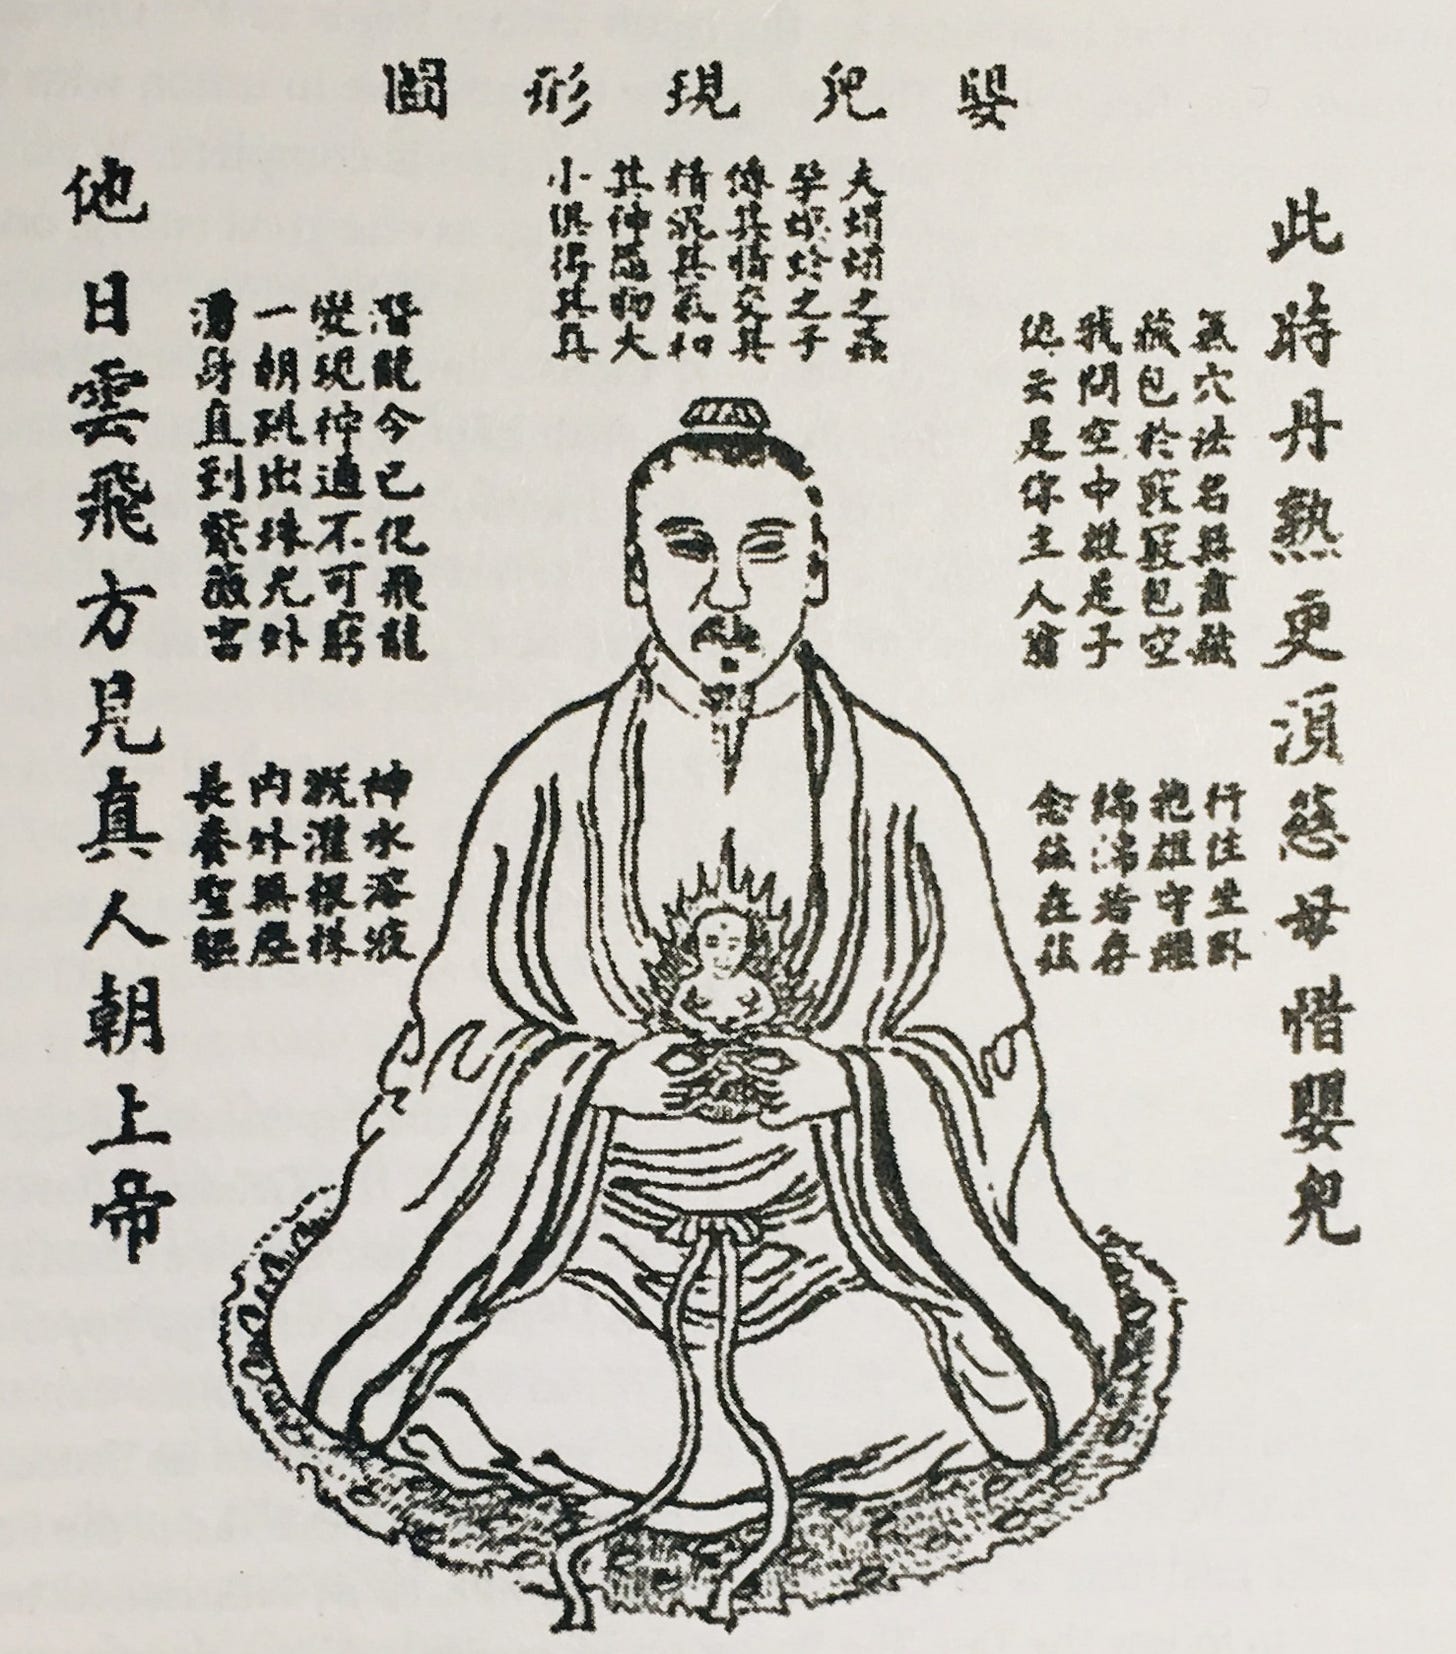 嬰兒現形圖
此時丹熟更須慈母惜嬰兒
氣穴法名無盡藏
藏包於竅竅包空
我問空中誰是子
他云是你主人翁
行住坐臥
抱雄守雌
綿綿若存
念茲在茲
夫蜎蜎之蟲
孕螟蛉之子
傳其情交其
精混其氣和
其神隨物大
小俱得其真
潛龍今已化飛龍
變現神通不可窮
一朝跳出珠光外
湧身直到紫微宮
神水溶液
溉灌根株
內外無塵
長養聖軀
他日雲飛方見真人朝上帝